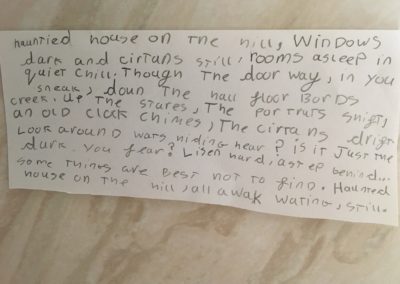 hauntied house on the hill, Windows
dark and cirtans still, rooms asleep in
quiet chill. Though the door way, in you
sneak, doun the hall floor Bords
creek. Up the stares, The portruts shift,
an old clok chimes, The cirtans drift
Look around wats hiding hear? is it Just the
dark you fear? Lisen hard, a step behind...
some things are Best not to find. Haunted
house on the hill, all awak wating, still.